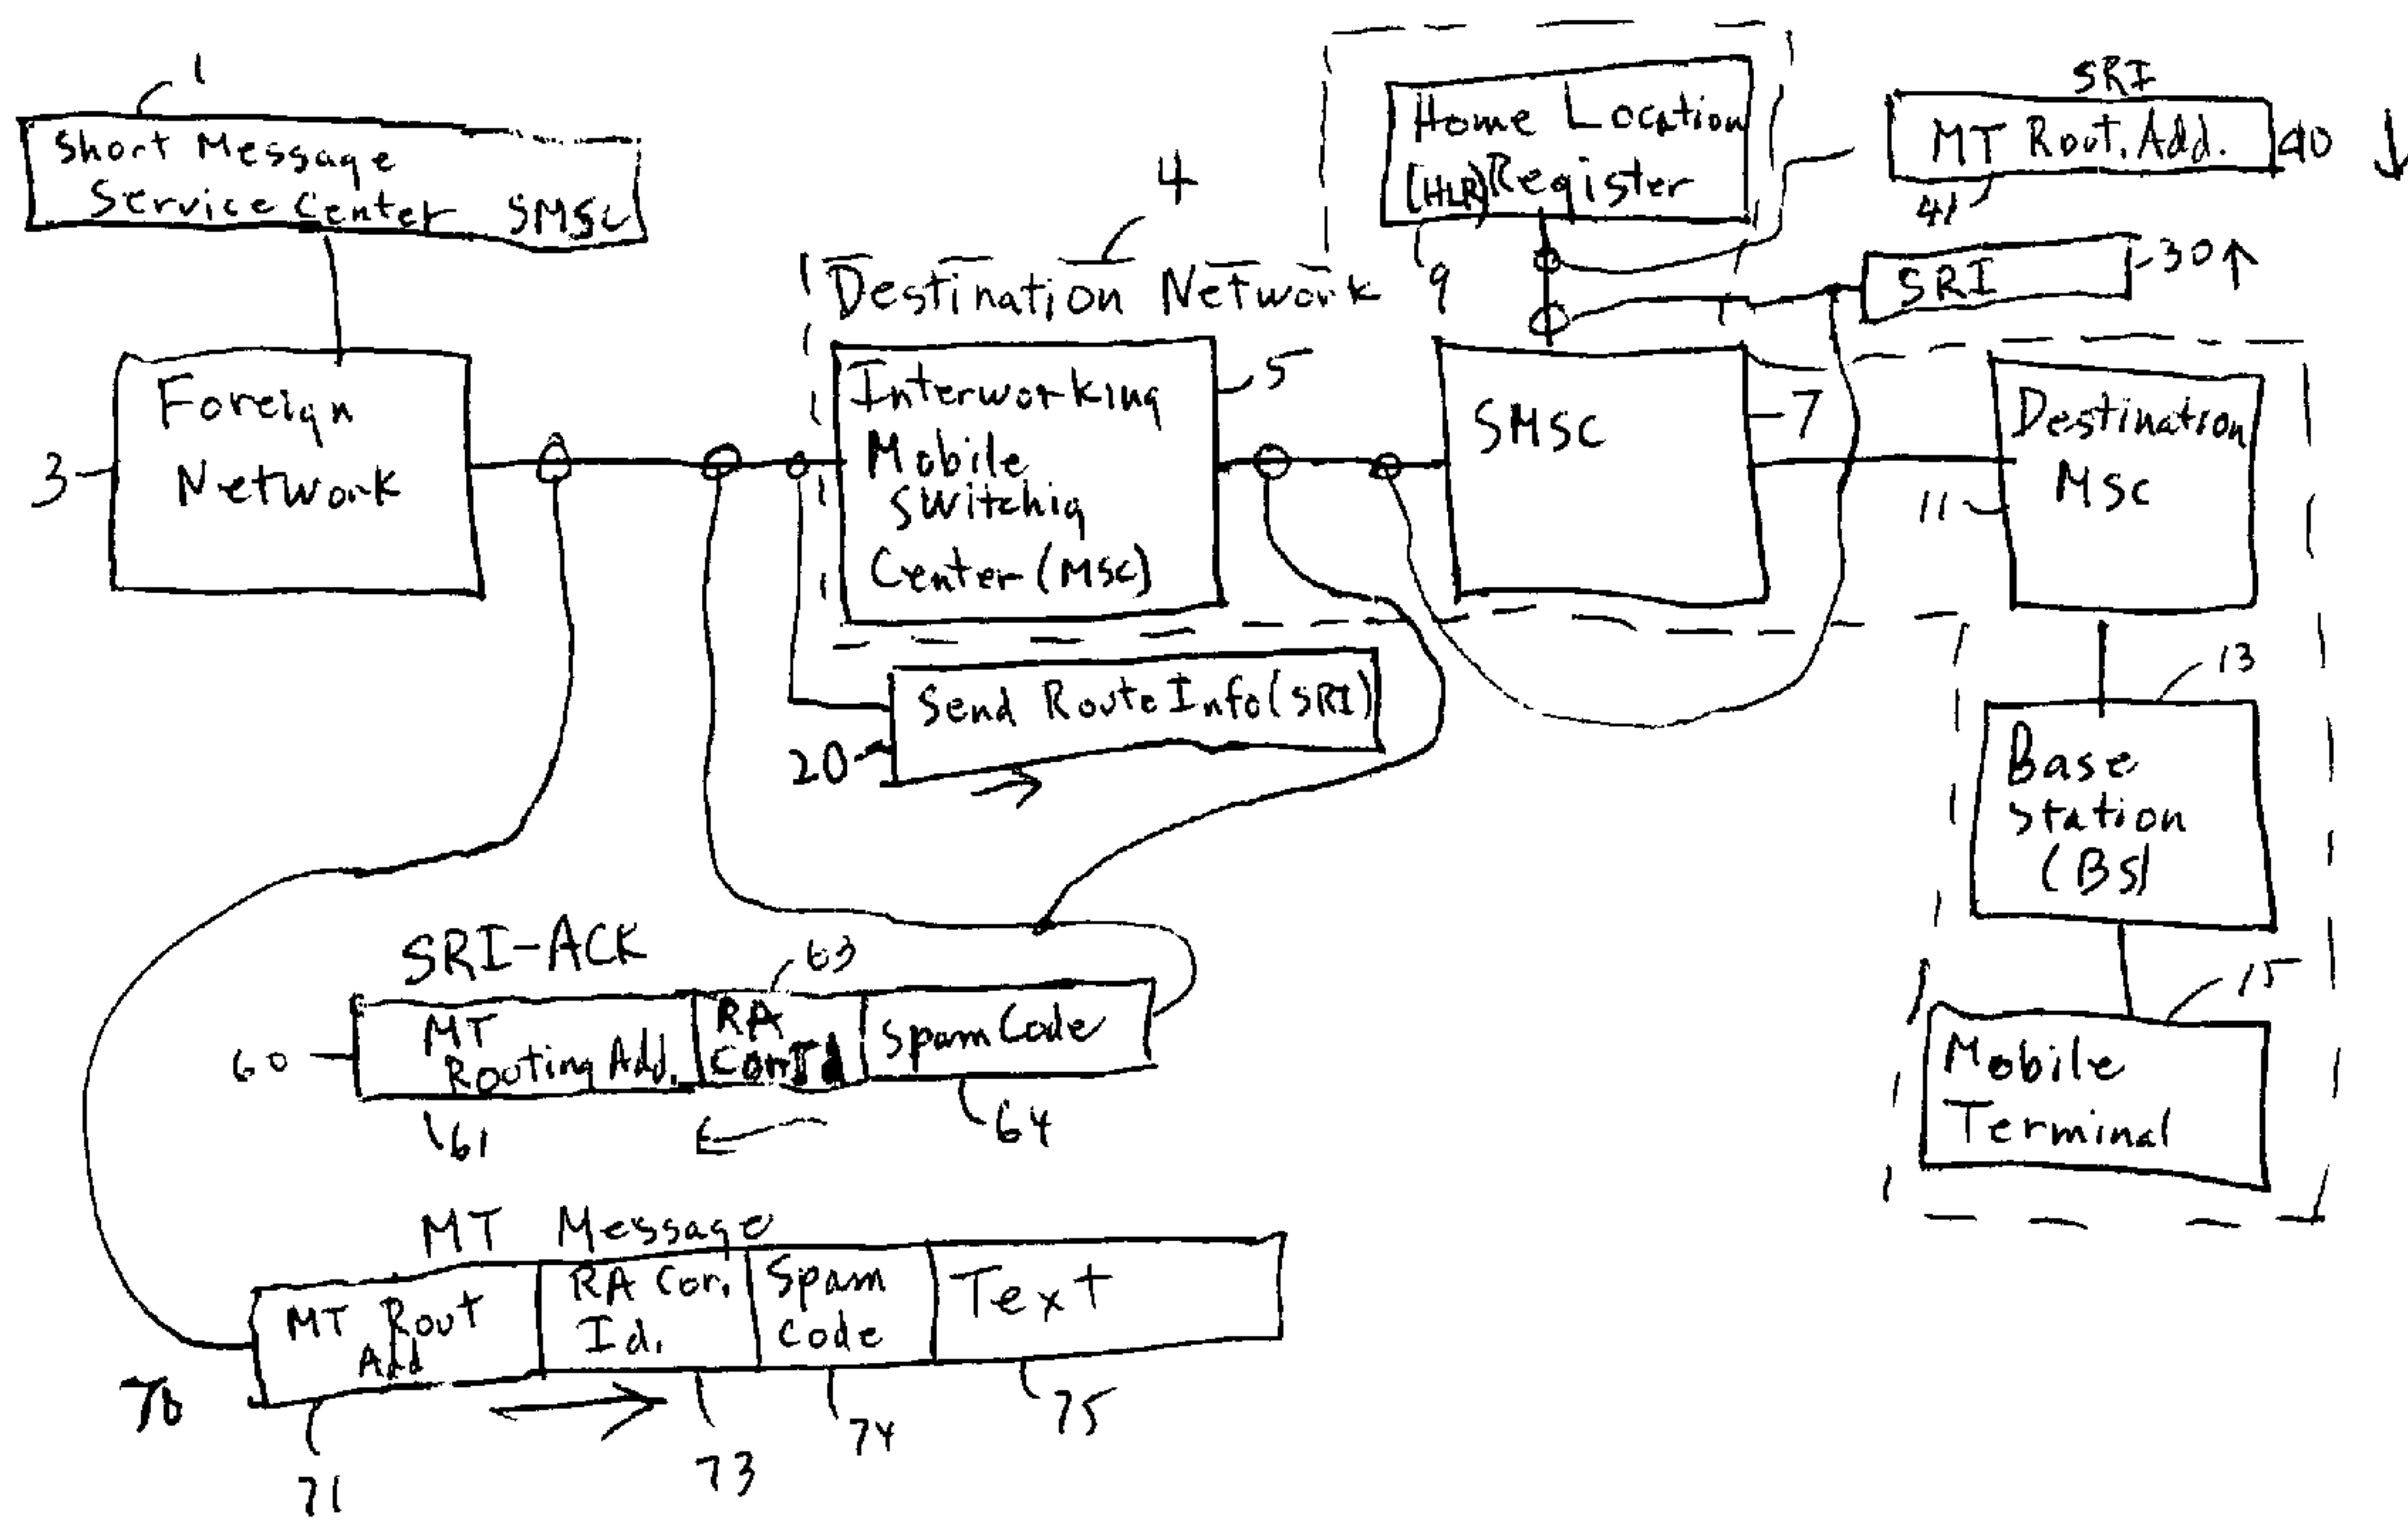 1
Short Message
Service Center SMSC
4
Home Location
(HLR) Register
9
SRI
MT Rout. Add.
40
41
SRI
30
Destination Network
3
Foreign
Network
Interworking
Mobile
Switchig
Center (MSC)
5
SMSC
7
Destination
MSC
11
Send Route Info (SRI)
20
13
Base
Station
(BS)
15
Mobile
Terminal
SRI-ACK
63
60
MT
Routing Add.
RA
Spam Code
61
64
MT Message
MT Rout
Add
RA Cor.
Id.
Spam
Code
Text
70
71
73
74
75